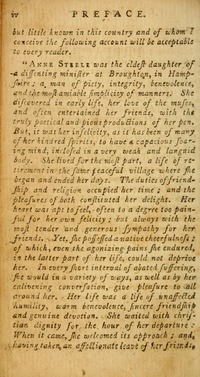 iv PREFACE.
but little known in this country and of whom I
conceive the following account will be acceptable
to every reader.
"ANNE STEELE was the eldest daughter of
a dissenting minister at Broughton, in Hamp-
shire; a man of piety, integrity, benevolence,
and the most amiable simplicity of manners. She
discovered in early life, her love of the muses,
and often entertained her friends, with the
truly poetical and pious productions of her pen.
But, it was her infelicity, as it has been of many
of her kindred spirits, to have a capacious soar-
ing mind, inclosed in a very weak and languid
body. She lived for the most part, a life of re-
tirement in the same peaceful village where she
began and ended her days. The duties of friend-
ship and religion occupied her time; and the
pleasures of both constituted her delight. Her
heart was apt to feel, often to a degree too pain-
ful for her own felicity; but always with the
most tender and generous sympathy for her
friends. Yet, she possessed a native cheerfulness;
of which, even the agonizing pains she endured,
in the latter part of her life, could not deprive
her. In every short interval of abated suffering,
she would in a variety of ways, as well as by her
enlivening conversation, give pleasure to all
around her. Her life was a life of unaffected
humility, warm benevolence, sincere friendship
and genuine devotion. She waited with chris-
tian dignity for the hour of her departure:
When it came, she welcomed its approach; and,
having taken, an affectionate leave of her friends,